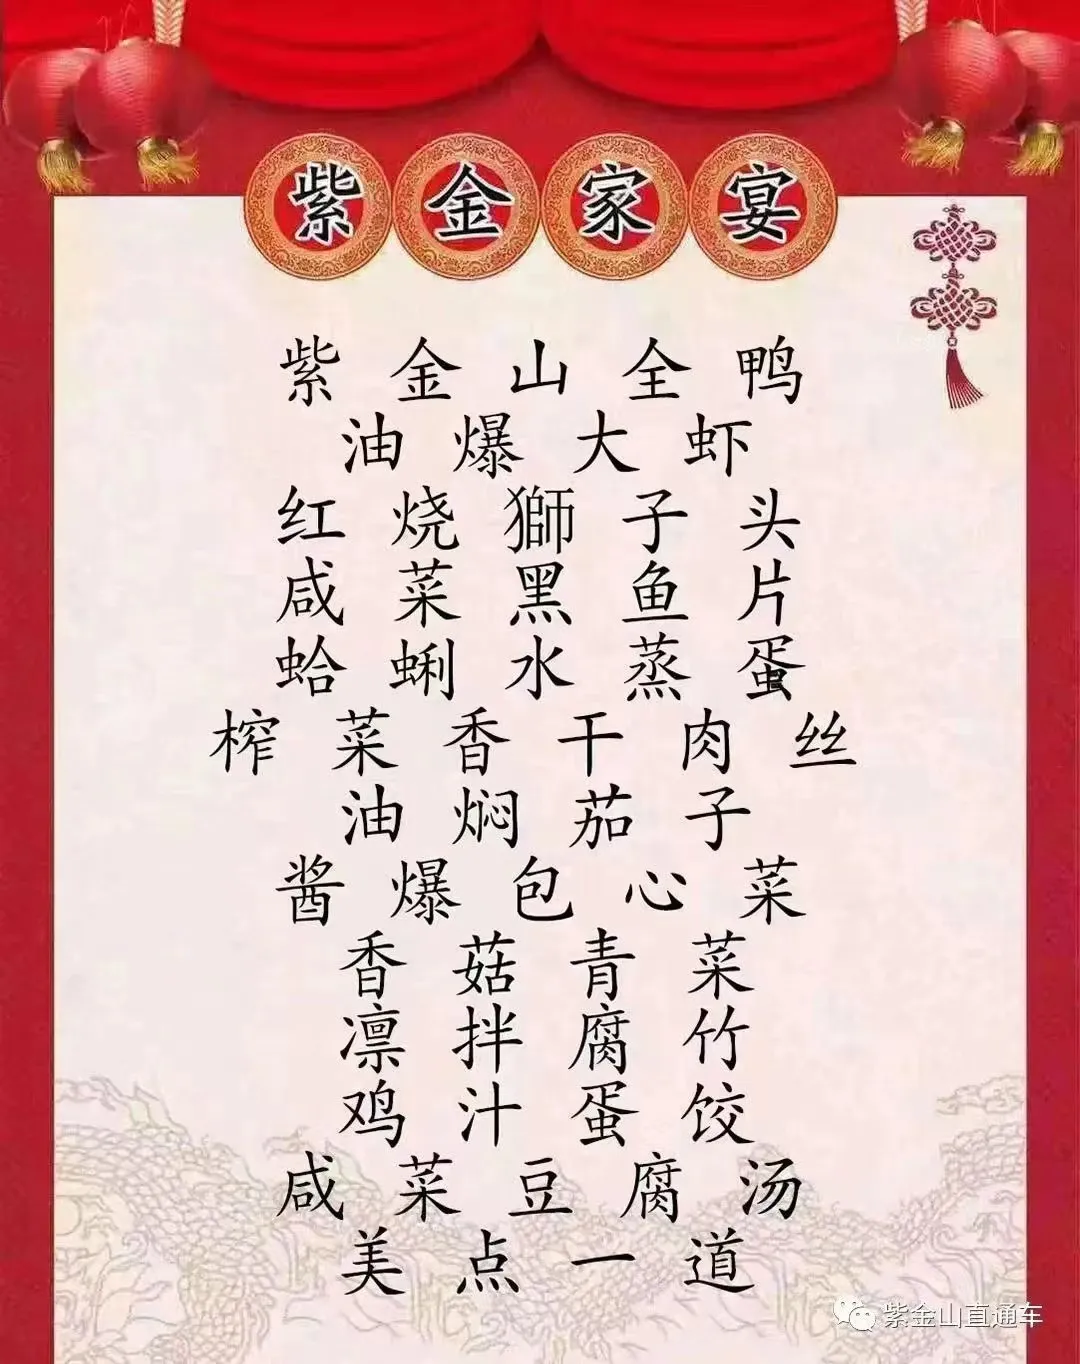 紫金家宴
紫金山全鸭
油爆大虾
红烧獅子头
咸菜黑鱼片
蛤蜊水蒸蛋
榨菜香干肉丝
油焖茄子
酱爆包心菜
香菇青菜
凛拌腐竹
鸡汁蛋饺
咸菜豆腐汤
美点一道
紫金山直通车